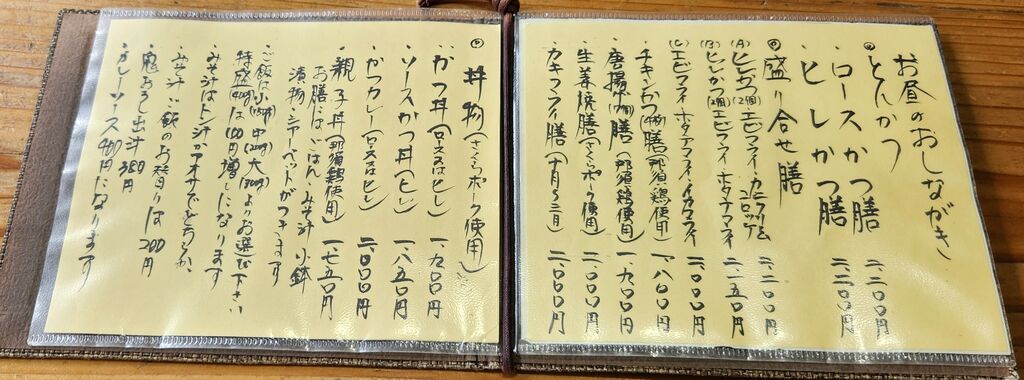 お昼のおしながき
◎とんかつ
・ロースかつ膳 二、二〇〇円
・ヒレかつ膳 二、二〇〇円
◎盛り合せ膳
(A) ヒレかつ(2個)エビフライ・カニクリームコロッケ 二、二〇〇円
(B) ヒレかつ(2個)エビフライ ホタテフライ 二、一五〇円
(C) エビフライ ホタテフライ イカフライ 二、〇〇〇円
チキンかつ膳(那須鶏使用) 一、八〇〇円
唐揚膳(那須鶏使用) 一、九〇〇円
生姜焼膳(さくらポーク使用) 二、〇〇〇円
カキフライ膳(十月〜三月) 二、〇〇〇円
◎丼物(さくらポーク使用)
・かつ丼(ロース又はヒレ) 一、九〇〇円
・ソースかつ丼(ヒレ) 一、八五〇円
・かつカレー(ロース又はヒレ) 二、〇〇〇円
・親子丼(那須鶏使用) 一、七五〇円
お膳は、ごはん、みそ汁 小鉢
漬物、シャーベットがつきます
・ご飯は小(150g)中(200g)大(300g)よりお選び下さい
特盛(400g)は100円増しになります
・みそ汁はトン汁かアオサでどちらか
・みそ汁 ご飯のお替りは 200円
・鬼おろし出汁
・カレーソース 400円になります